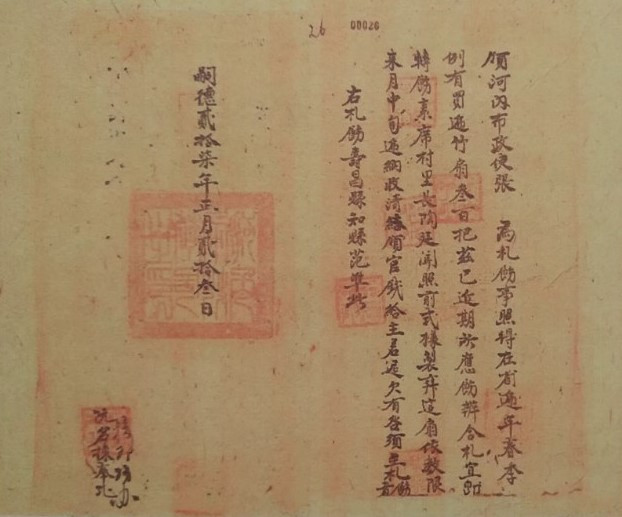 26 00026
領河內布政使張 為札飭事照得在省遞年春季
例有買遞竹扇叁百把茲已近期所應飭辦合札宜即
轉飭素席村里長陶廷闻照前式樣製弄這扇依数限
来月中旬遞納收清繳領官錢若遲欠有咎須至札飭者
右札飭壽昌縣知縣范準此
嗣德貳拾柒年正月貳拾叁日